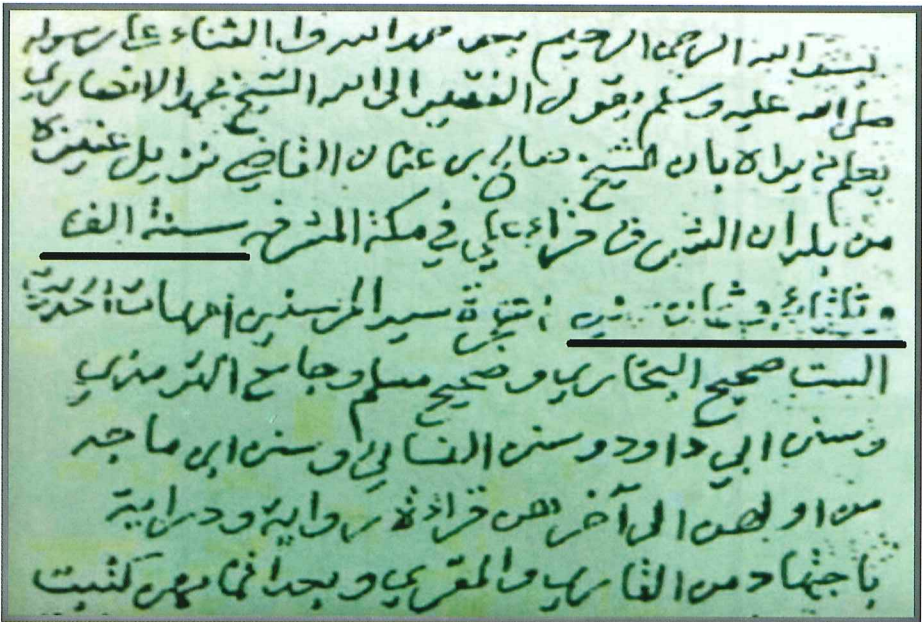 بسم الله الرحمن الرحيم بعد حمد الله والثناء على رسوله
صلى الله عليه وسلم يقول الفقير الى الله الشيخ محمد الانصاري
يعلم من يراه بان الشيخ صالح بن عثمان القاضي نزيل عنيزة
من بلدان الشرق قراء علي في مكة المشرفه سنة الف
وثلثمائة وثمان من هجرة سيد المرسلين امهات الحديث
الست صحيح البخاري وصحيح مسلم وجامع الترمذي
وسنن ابي داود وسنن النسائي وسنن ابن ماجه
من اولهن الى آخرهن قراءة رواية ودراية
باجتهاد من القاري والمقري وبعد اتمامهن كتبت